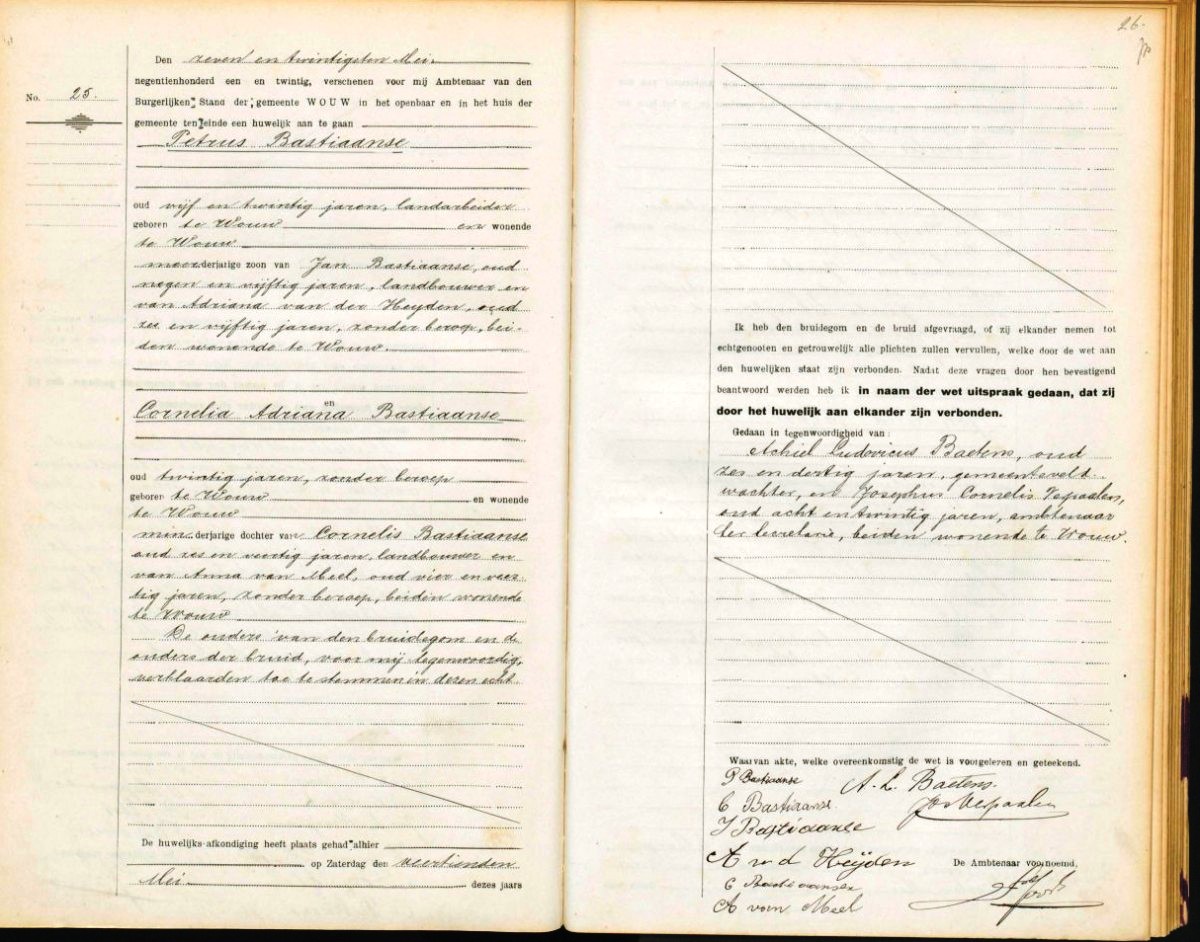 Den zeven en twintigsten Mei
negentienhonderd een en twintig, verschenen voor mij Ambtenaar van den
Burgerlijken Stand der gemeente WOUW in het openbaar en in het huis der
gemeente ten einde een huwelijk aan te gaan
No. 25.
Petrus Bastiaanse
oud vijf en twintig jaren, landarbeider
geboren te Wouw en wonende
te Wouw
meerderjarige zoon van Jan Bastiaanse, oud
negen en vijftig jaren, landbouwer en
van Adriana van der Heyden, oud
zes en vijftig jaren, zonder beroep, bei-
den wonende te Wouw.
en
Cornelia Adriana Bastiaanse
oud twintig jaren, zonder beroep
geboren te Wouw en wonende
te Wouw
minderjarige dochter van Cornelis Bastiaanse
oud zes en veertig jaren, landbouwer en
van Anna van Meel, oud vier en veer-
tig jaren, zonder beroep, beiden wonende
te Wouw
De ouders van den bruidegom en de
ouders der bruid, voor mij tegenwoordig,
verklaarden toe te stemmen in dezen echt.
De huwelijks-afkondiging heeft plaats gehad alhier
op Zaterdag den veertienden
Mei dezes jaars
26.
Ik heb den bruidegom en de bruid afgevraagd, of zij elkander nemen tot
echtgenooten en getrouwelijk alle plichten zullen vervullen, welke door de wet aan
den huwelijken staat zijn verbonden. Nadat deze vragen door hen bevestigend
beantwoord werden heb ik in naam der wet uitspraak gedaan, dat zij
door het huwelijk aan elkander zijn verbonden.
Gedaan in tegenwoordigheid van:
Achiel Ludovicus Baetens, oud
zes en dertig jaren, gemeenteveld-
wachter, en Josephus Cornelis Verpaalen,
oud acht en twintig jaren, ambtenaar
ter secretarie, beiden wonende te Wouw.
Waarvan akte, welke overeenkomstig de wet is voorgelezen en geteekend.
P Bastiaanse A. L. Baetens
C Bastiaanse Jos Verpaalen
J Bastiaanse
A v d Heijden De Ambtenaar voornoemd,
C Bastiaanse
A van Meel